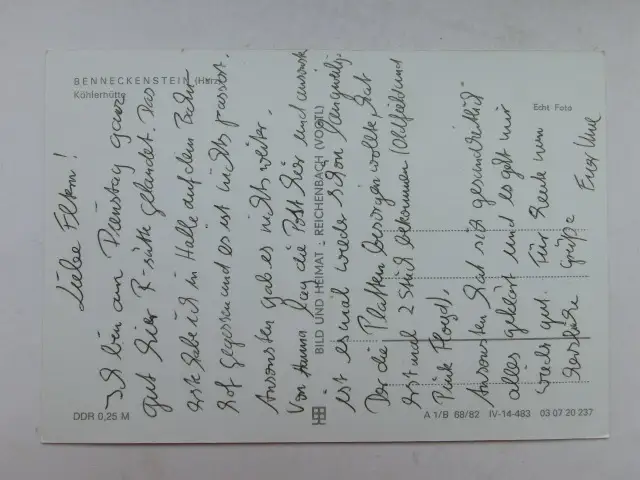 BENNECKENSTEIN (Harz)
Köhlerhütte
Echt Foto
BILD UND HEIMAT · REICHENBACH (VOGTL)
DDR 0,25 M
A 1/B 68/82 IV-14-483 03 07 20 237
Liebe Eltern!
Ich bin am Dienstag ganz
gut hier gelandet. Das
erste habe ich in Halle auf dem Bahn-
hof gegessen und es ist nichts passiert.
Ansonsten gab es nichts weiter.
Von Hanna lag die Post hier und ansonsten
ist es mal wieder schon
Der die Platten besorgen wollte, hat
erst mal 2 Stück bekommen (Oldfield und
Pink Floyd).
Ansonsten hat sich gesundheitlich
alles geklärt und es geht mir
wieder gut. Für heute nun
herzliche Grüße
Euer Uwe